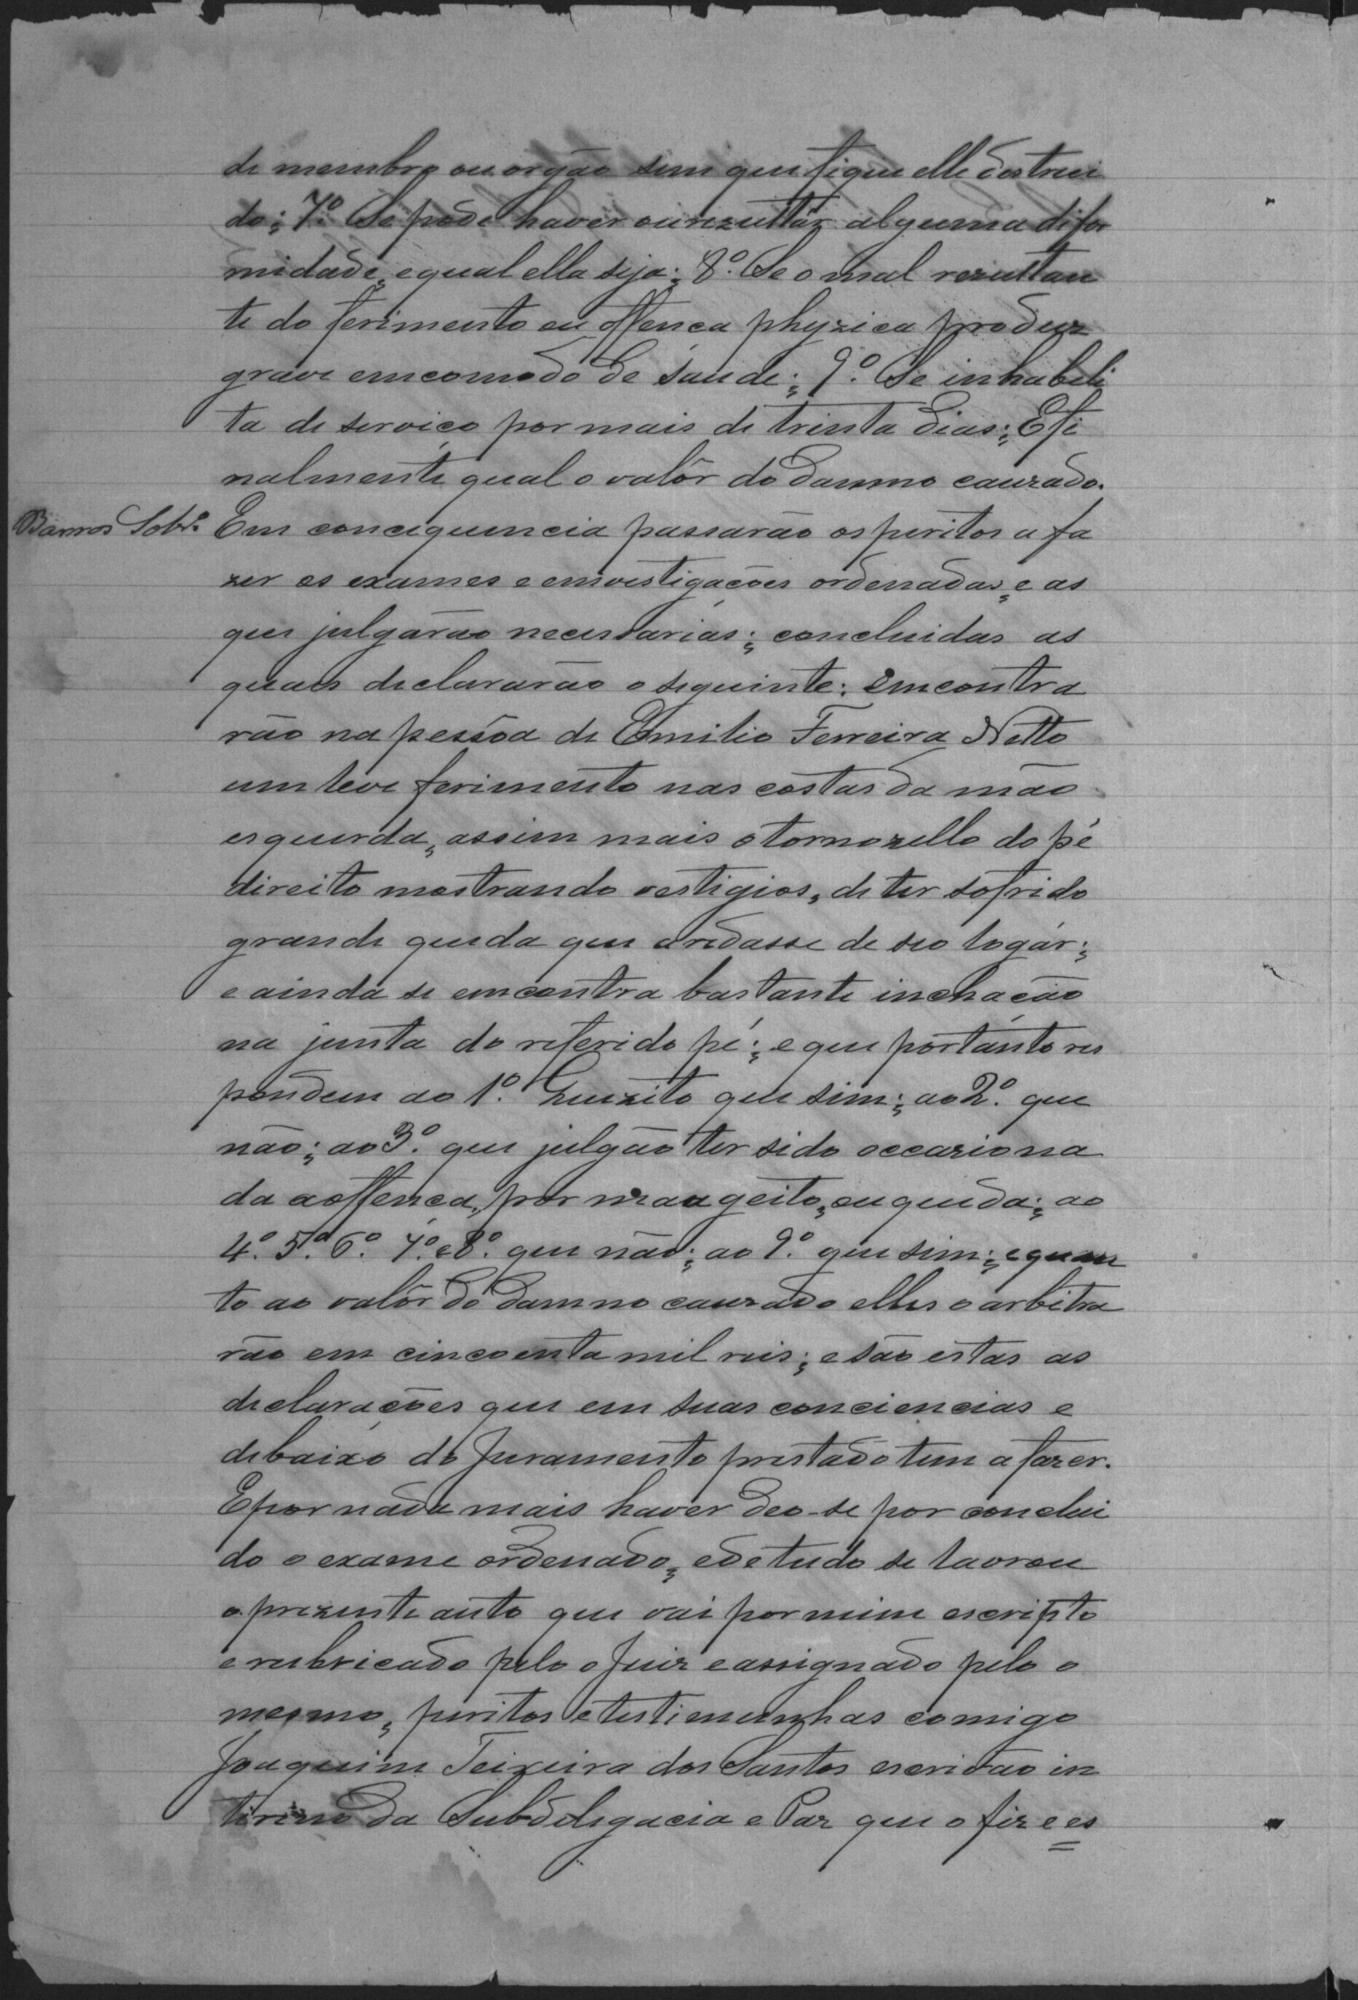 de membro ou orgão sem que fique elle destrui
do; 7º Se pode haver ou rezultar alguma difor
midade, e qual ella seja; 8º. Se o mal rezultan
te do ferimento ou offença physica produz
grave emcomodo de saude; 9º. Se inhabeli
ta de serviço por mais de trinta dias; E fi
nalmente qual o valôr do damno cauzado.
Barros Sobrº Em conciquencia passarão os peritos a fa
zer os exames e emvestigações ordenadas, e as
que julgarão necessarias; concluidas as
quaes declararão o seguinte: emcontra
rão na pessôa de Emilio Ferreira Netto
um leve ferimento nas costas da mão
esquerda, assim mais o tornozello do pé
direito mostrando vestigios, de ter sofrido
grande queda que aredasse de seo logár;
e ainda se emcontra bastante inchação
na junta do referido pé; e que portanto res
pondem ao 1º. Quizito que sim; ao 2º. que
não; ao 3º. que julgão ter sido occaziona
da a offença, por mau geito, ou queda; ao
4º. 5º. 6º. 7º. e 8º. que não; ao 9º. que sim; e quan
to ao valôr do damno cauzado elles o arbitra
rão em cincoenta mil reis; e são estas as
declarações que em suas conciencias e
debaixo do Juramento prestado tem a fazer.
E por nada mais haver deo-se por conclui
do o exame ordenado, e de tudo se lavrou
o prezente auto que vai por mim escripto
e rubricado pelo o Juiz e assignado pelo o
mesmo, peritos e testimunhas comigo
Joaquim Teixeira dos Santos escrivão in
terino da Subdelegacia e Paz que o fiz e es